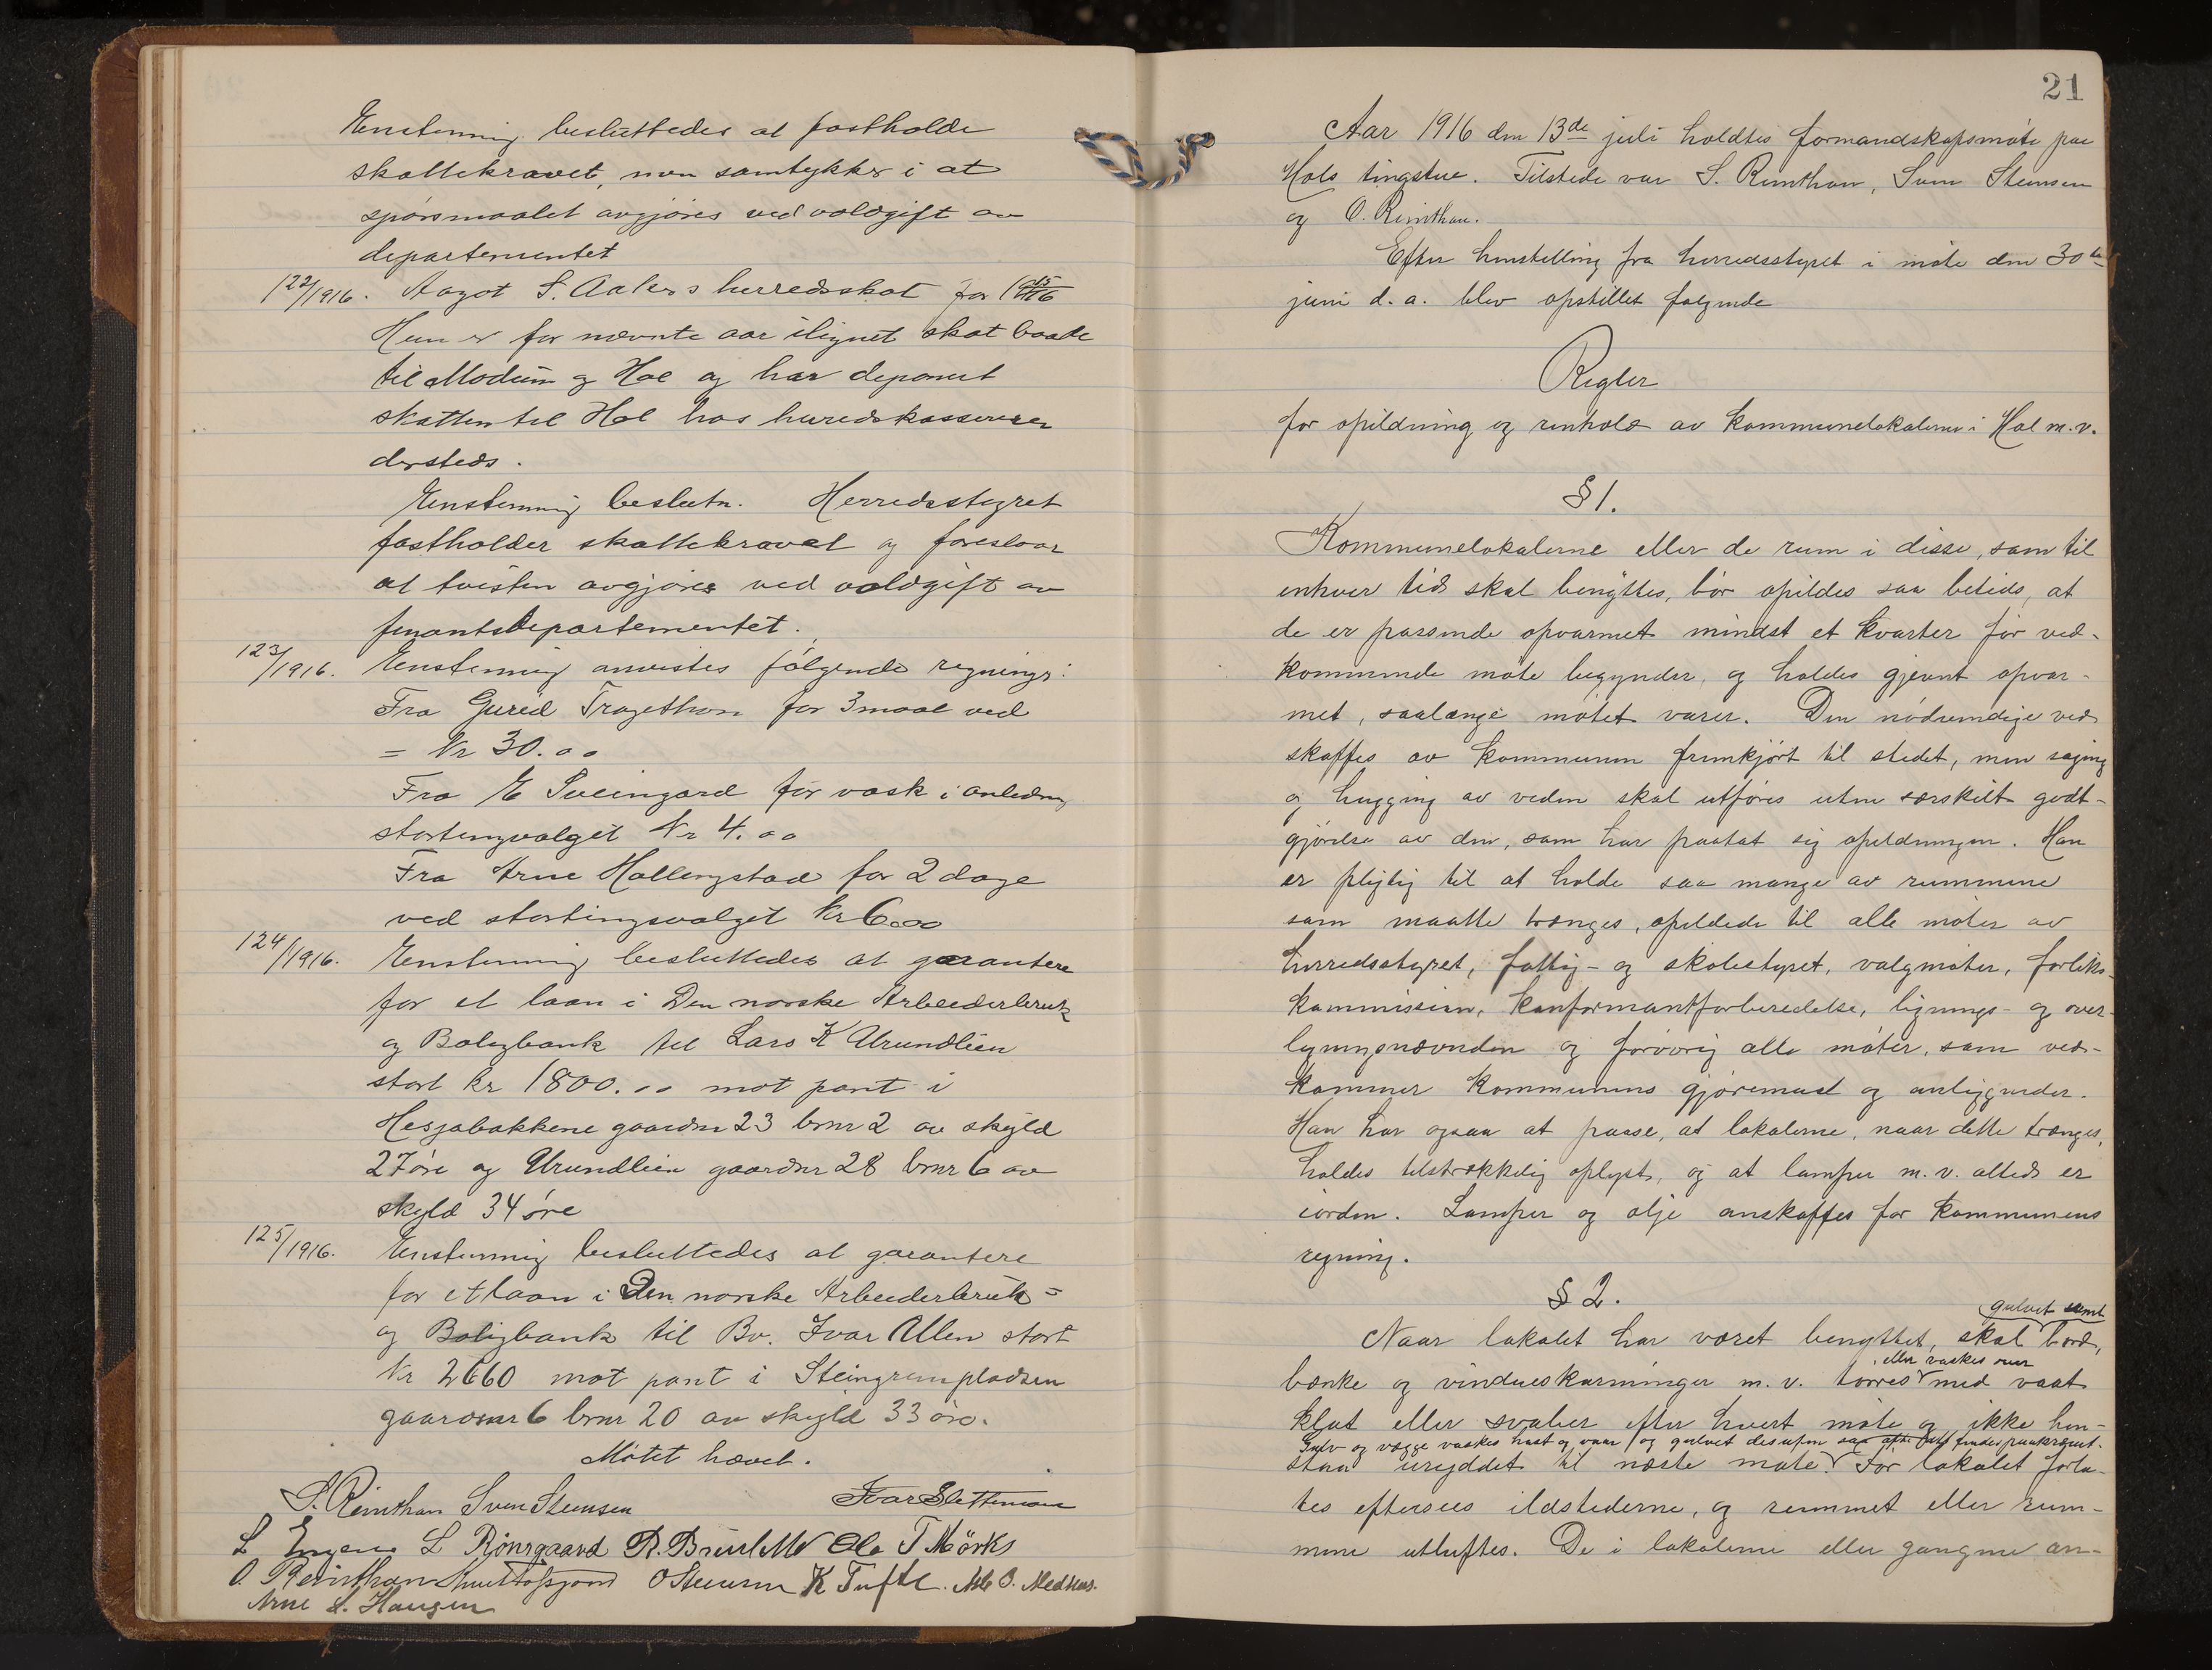 Enstemmig besluttedes at fastholde
skattekravet, men samtykker i at
spörsmaalet avgjöres ved voldgift av
departementet
122/1916. Aagot S. Aakers herredsskat for
Hun er for nævnte aar ilignet skat baade
til Modum og Hol og har deponert
skatten til Hol hos herredskassereren
dersteds.
Enstemmig beslutn. Herredsstyret
fastholder skattekravet og foreslaar
at tvisten avgjöres ved voldgift av
finantsdepartementet.
123/1916. Enstemmig anvistes fölgende regninger:
Fra Gured Tragethon for 3 maal ved
= Kr 30.00
Fra E Sveingard for vask i anledng
stortingvalget Kr 4.00
Fra Arne Hallingstad for 2 dage
ved stortingsvalget Kr 6.00
124/1916. Enstemmig besluttedes at garantere
for et laan i Den norske Arbeiderbruk
og Boligbank til Lars K Urundlien
stort kr 1800.00 mot pant i
Hesjabakkene gaardnr 23 brnr 2 av skyld
27 öre og Urundlien gaardnr 28 brnr 6 av
skyld 34 öre
125/1916. Enstemmig besluttedes at garantere
for et laan i Den norske Arbeiderbruk =
og Boligbank til Bv. Ivar Ullen stort
Kr 2660 mot pant i Steingrimpladsen
gaardsnr 6 brnr 20 av skyld 33 öre.
Mötet hævet.
S. Reinthan Sven Steinsen Ivar Slettemoen
L Engene L Rönsgaard Ola T Mörks
O. Reinthan O Steinsen K Tufte. Asle O. Medhus.
Arne L. Haugen
21
Aar 1916 den 13de juli holdtes formandskapsmöte paa
Hols tingstue. Tilstede var S. Reinthan, Sven Steinsen
og O. Reinthan.
Efter henstilling fra herredsstyret i möte den 30te
juni d. a. blev opstillet fölgende
Regler
for opildning og renhold av kommunelokalerne i Hol m.v.
§ 1.
Kommunelokalerne eller de rum i disse, som til
enhver tid skal benyttes, bör opildes saa betids, at
de er passende opvarmet mindst et kvarter för ved-
kommende möte begynder, og holdes gjevnt opvar-
met, saalænge mötet varer. Den nödvendige ved
skaffes av kommunen fremkjört til stedet, men saging
og hugging av veden skal utföres uten særskilt godt-
gjörelse av den, som har paatat sig opildningen. Han
er pligtig til at holde saa mange av rummene
som maatte trænges, opildede til alle möter av
herredsstyret, fattig- og skolestyret, valgmöter, forliks-
kommission, konfirmantforberedelse, lignings- og over-
ligningsnævnden og forövrig alle möter, som ved-
kommer kommunens gjöremaal og anliggender.
Han har ogsaa at paase, at lokalerne, naar dette trænges,
holdes tilstrækkelig oplyst, og at lamper m.v. altid er
iorden. Lamper og olje anskaffes for kommunens
regning.
§ 2.
gulvet samt
Naar lokalet har været benyttet, skal bord,
eller vaskes over
bænke og vindueskarminger m.v. törres med vaat
klut eller svaber efter hvert möte og ikke hen-
Gulv og vægge vaskes höst og vaar og gulvet desuten saa ofte det findes paakrævet.
staa uryddet til næste möte. För lokalet forla-
tes eftersees ildstederne, og rummet eller rum-
mene utluftes. De i lokalerne eller gangene an-